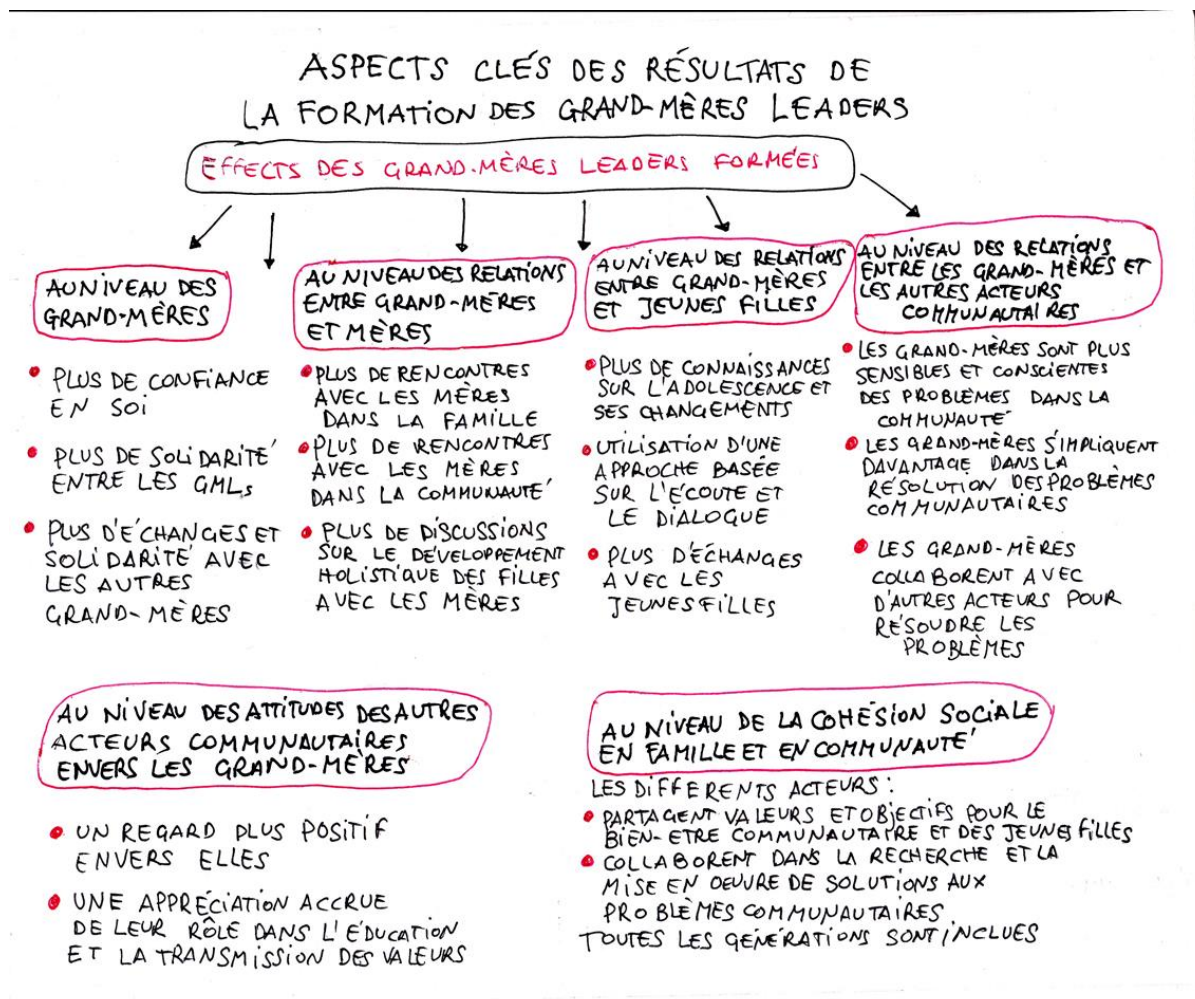 ASPECTS CLÉS DES RÉSULTATS DE
LA FORMATION DES GRAND-MÈRES LEADERS
EFFECTS DES GRAND-MÈRES LEADERS FORMÉES
AU NIVEAU DES
GRAND-MÈRES
• PLUS DE CONFIANCE
EN SOI
• PLUS DE SOLIDARITÉ
ENTRE LES GMLs
• PLUS D'ÉCHANGES ET
SOLIDARITÉ AVEC
LES AUTRES
GRAND-MÈRES
AU NIVEAU DES RELATIONS
ENTRE GRAND-MÈRES
ET MÈRES
• PLUS DE RENCONTRES
AVEC LES MÈRES
DANS LA FAMILLE
• PLUS DE RENCONTRES
AVEC LES MÈRES
DANS LA COMMUNAUTÉ
• PLUS DE DISCUSSIONS
SUR LE DÉVELOPPEMENT
HOLISTIQUE DES FILLES
AVEC LES MÈRES
AU NIVEAU DES RELATIONS
ENTRE GRAND-MÈRES
ET JEUNES FILLES
• PLUS DE CONNAISSANCES
SUR L'ADOLESCENCE ET
SES CHANGEMENTS
• UTILISATION D'UNE
APPROCHE BASÉE
SUR L'ÉCOUTE ET
LE DIALOGUE
• PLUS D'ÉCHANGES
AVEC LES
JEUNES FILLES
AU NIVEAU DES RELATIONS
ENTRE LES GRAND-MÈRES ET
LES AUTRES ACTEURS
COMMUNAUTAIRES
• LES GRAND-MÈRES SONT PLUS
SENSIBLES ET CONSCIENTES
DES PROBLÈMES DANS LA
COMMUNAUTÉ
• LES GRAND-MÈRES S'IMPLIQUENT
DAVANTAGE DANS LA
RÉSOLUTION DES PROBLÈMES
COMMUNAUTAIRES
• LES GRAND-MÈRES
COLLABORENT AVEC
D'AUTRES ACTEURS POUR
RÉSOUDRE LES
PROBLÈMES
AU NIVEAU DES ATTITUDES DES AUTRES
ACTEURS COMMUNAUTAIRES
ENVERS LES GRAND-MÈRES
• UN REGARD PLUS POSITIF
ENVERS ELLES
• UNE APPRÉCIATION ACCRUE
DE LEUR RÔLE DANS L'ÉDUCATION
ET LA TRANSMISSION DES VALEURS
AU NIVEAU DE LA COHÉSION SOCIALE
EN FAMILLE ET EN COMMUNAUTÉ
LES DIFFERENTS ACTEURS :
• PARTAGENT VALEURS ET OBJECTIFS POUR LE
BIEN-ETRE COMMUNAUTAIRE ET DES JEUNES FILLES
• COLLABORENT DANS LA RECHERCHE ET LA
MISE EN OEUVRE DE SOLUTIONS AUX
PROBLÈMES COMMUNAUTAIRES
TOUTES LES GÉNÉRATIONS SONT INCLUES